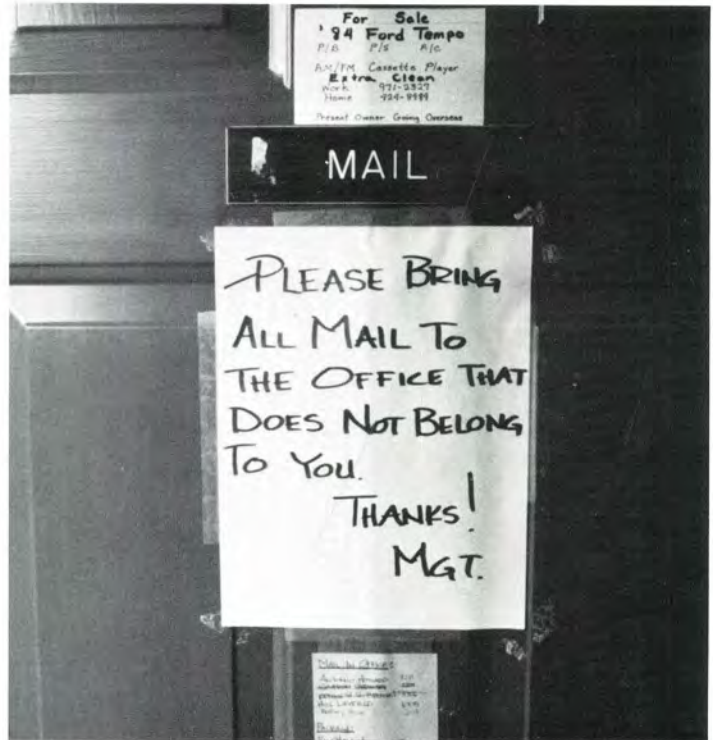 For Sale
'84 Ford Tempo
P/B P/S A/C
AM/FM Cassette Player
Extra Clean
Work 971-2327
Home 424-8989
Present Owner Going Overseas
MAIL
PLEASE BRING
ALL MAIL TO
THE OFFICE THAT
DOES NOT BELONG
TO YOU.
THANKS!
MGT.
MAIL IN OFFICE: